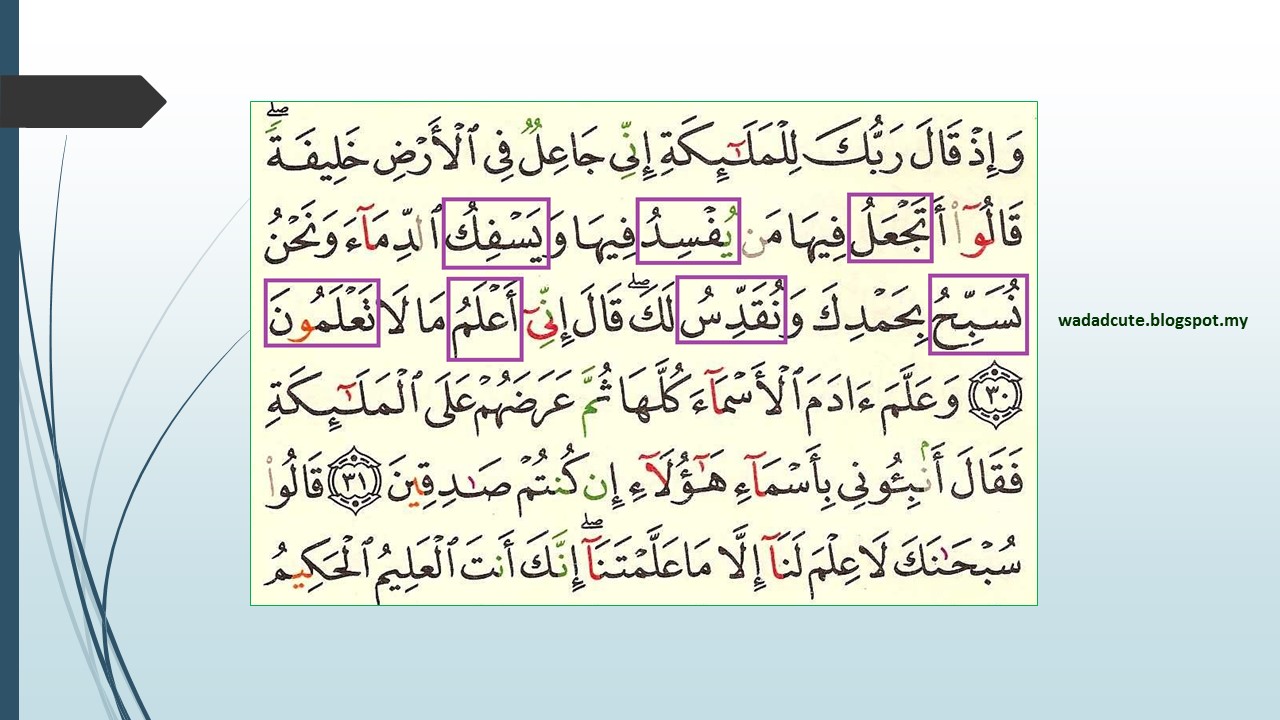 وَإِذْ قَالَ رَبُّكَ لِلْمَلَـٰٓئِكَةِ إِنِّى جَاعِلٌ فِى ٱلْأَرْضِ خَلِيفَةً ۖ
قَالُوٓا۟ أَتَجْعَلُ فِيهَا مَن يُفْسِدُ فِيهَا وَيَسْفِكُ ٱلدِّمَآءَ وَنَحْنُ
نُسَبِّحُ بِحَمْدِكَ وَنُقَدِّسُ لَكَ ۖ قَالَ إِنِّىٓ أَعْلَمُ مَا لَا تَعْلَمُونَ
٣٠ وَعَلَّمَ ءَادَمَ ٱلْأَسْمَآءَ كُلَّهَا ثُمَّ عَرَضَهُمْ عَلَى ٱلْمَلَـٰٓئِكَةِ
فَقَالَ أَنۢبِـُٔونِى بِأَسْمَآءِ هَـٰٓؤُلَآءِ إِن كُنتُمْ صَـٰدِقِينَ ٣١ قَالُوا۟
سُبْحَـٰنَكَ لَا عِلْمَ لَنَآ إِلَّا مَا عَلَّمْتَنَآ ۖ إِنَّكَ أَنتَ ٱلْعَلِيمُ ٱلْحَكِيمُ
wadadcute.blogspot.my